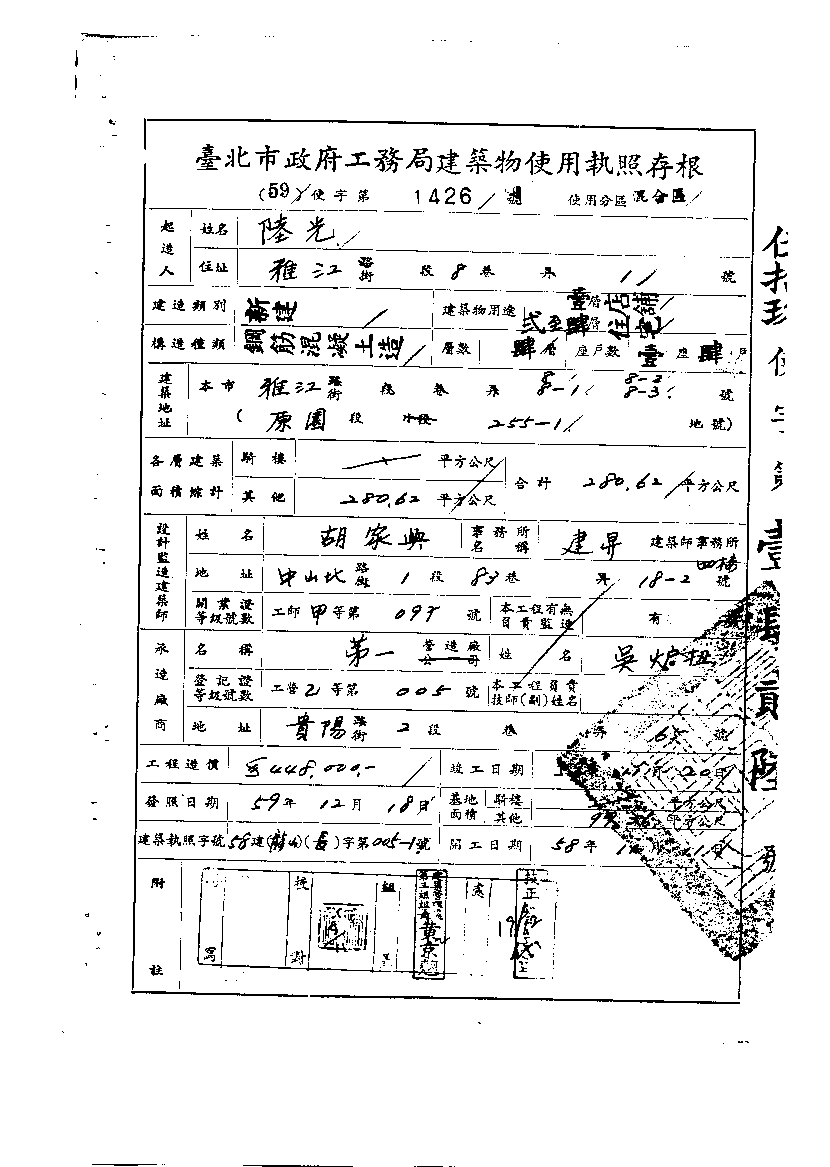 臺北市政府工務局建築物使用執照存根
(59)使字第 1426 號 使用分區 混合區
起造人 姓名 陸光
住址 雅江 路街 段 8 巷 弄 11 號
建造類別 新建 建築物用途 壹層店舖 貳至肆層住宅
構造種類 鋼筋混凝土造 層數 肆層 座戶數 壹座肆戶
建築地址 本市 雅江 路街 段 巷 弄 8 8-1 8-2 8-3 號
(原園段 小段 255-1 地號)
各層建築面積綜計 騎樓 平方公尺 合計 280.62 平方公尺
其他 280.62 平方公尺
設計監造建築師 姓名 胡家興 事務所名稱 建昇 建築師事務所
地址 中山北 路街 1 段 83 巷 弄 18-2 號 四樓
開業證等級號數 工師甲等第 號 本工程有無負責監造 有
承造廠商 名稱 第一 營造廠公司 姓名 吳
登記證等級號數 工營乙等第 005 號 本工程負責技師(副)姓名
地址 貴陽 路街 2 段 巷 弄 號
工程造價 448,000.- 竣工日期 20日
發照日期 59年 12月 18日 基地面積 騎樓 平方公尺
其他 平方公尺
建築執照字號 58建( )(長)字第005-1號 開工日期 58年 月 日
附註 寫 校對 組長 處 校正